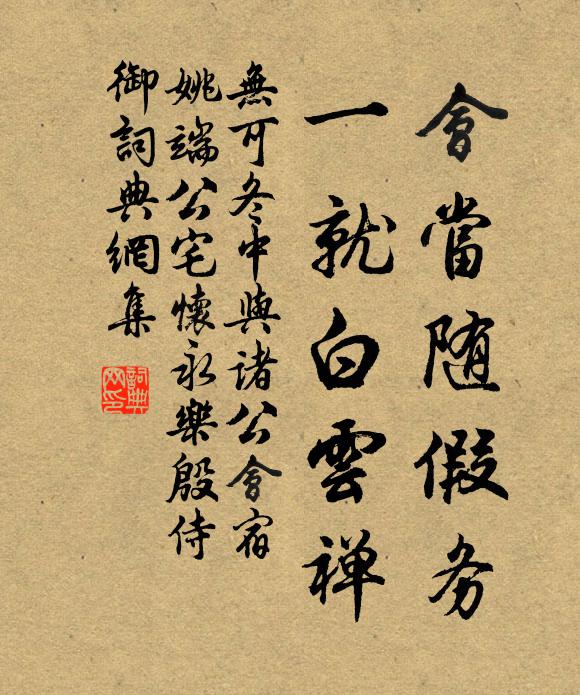 會當随假务
一就白雲禅
無可冬中與諸公會宿
姚端公宅懷永樂殷侍
御詞典網集
詞典网印